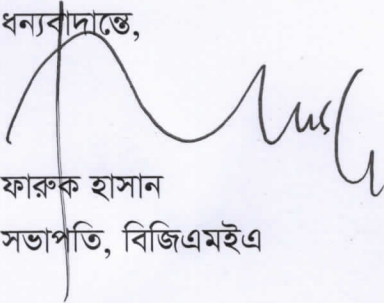 ধন্যবাদান্তে,
ফারুক হাসান
সভাপতি, বিজিএমইএ